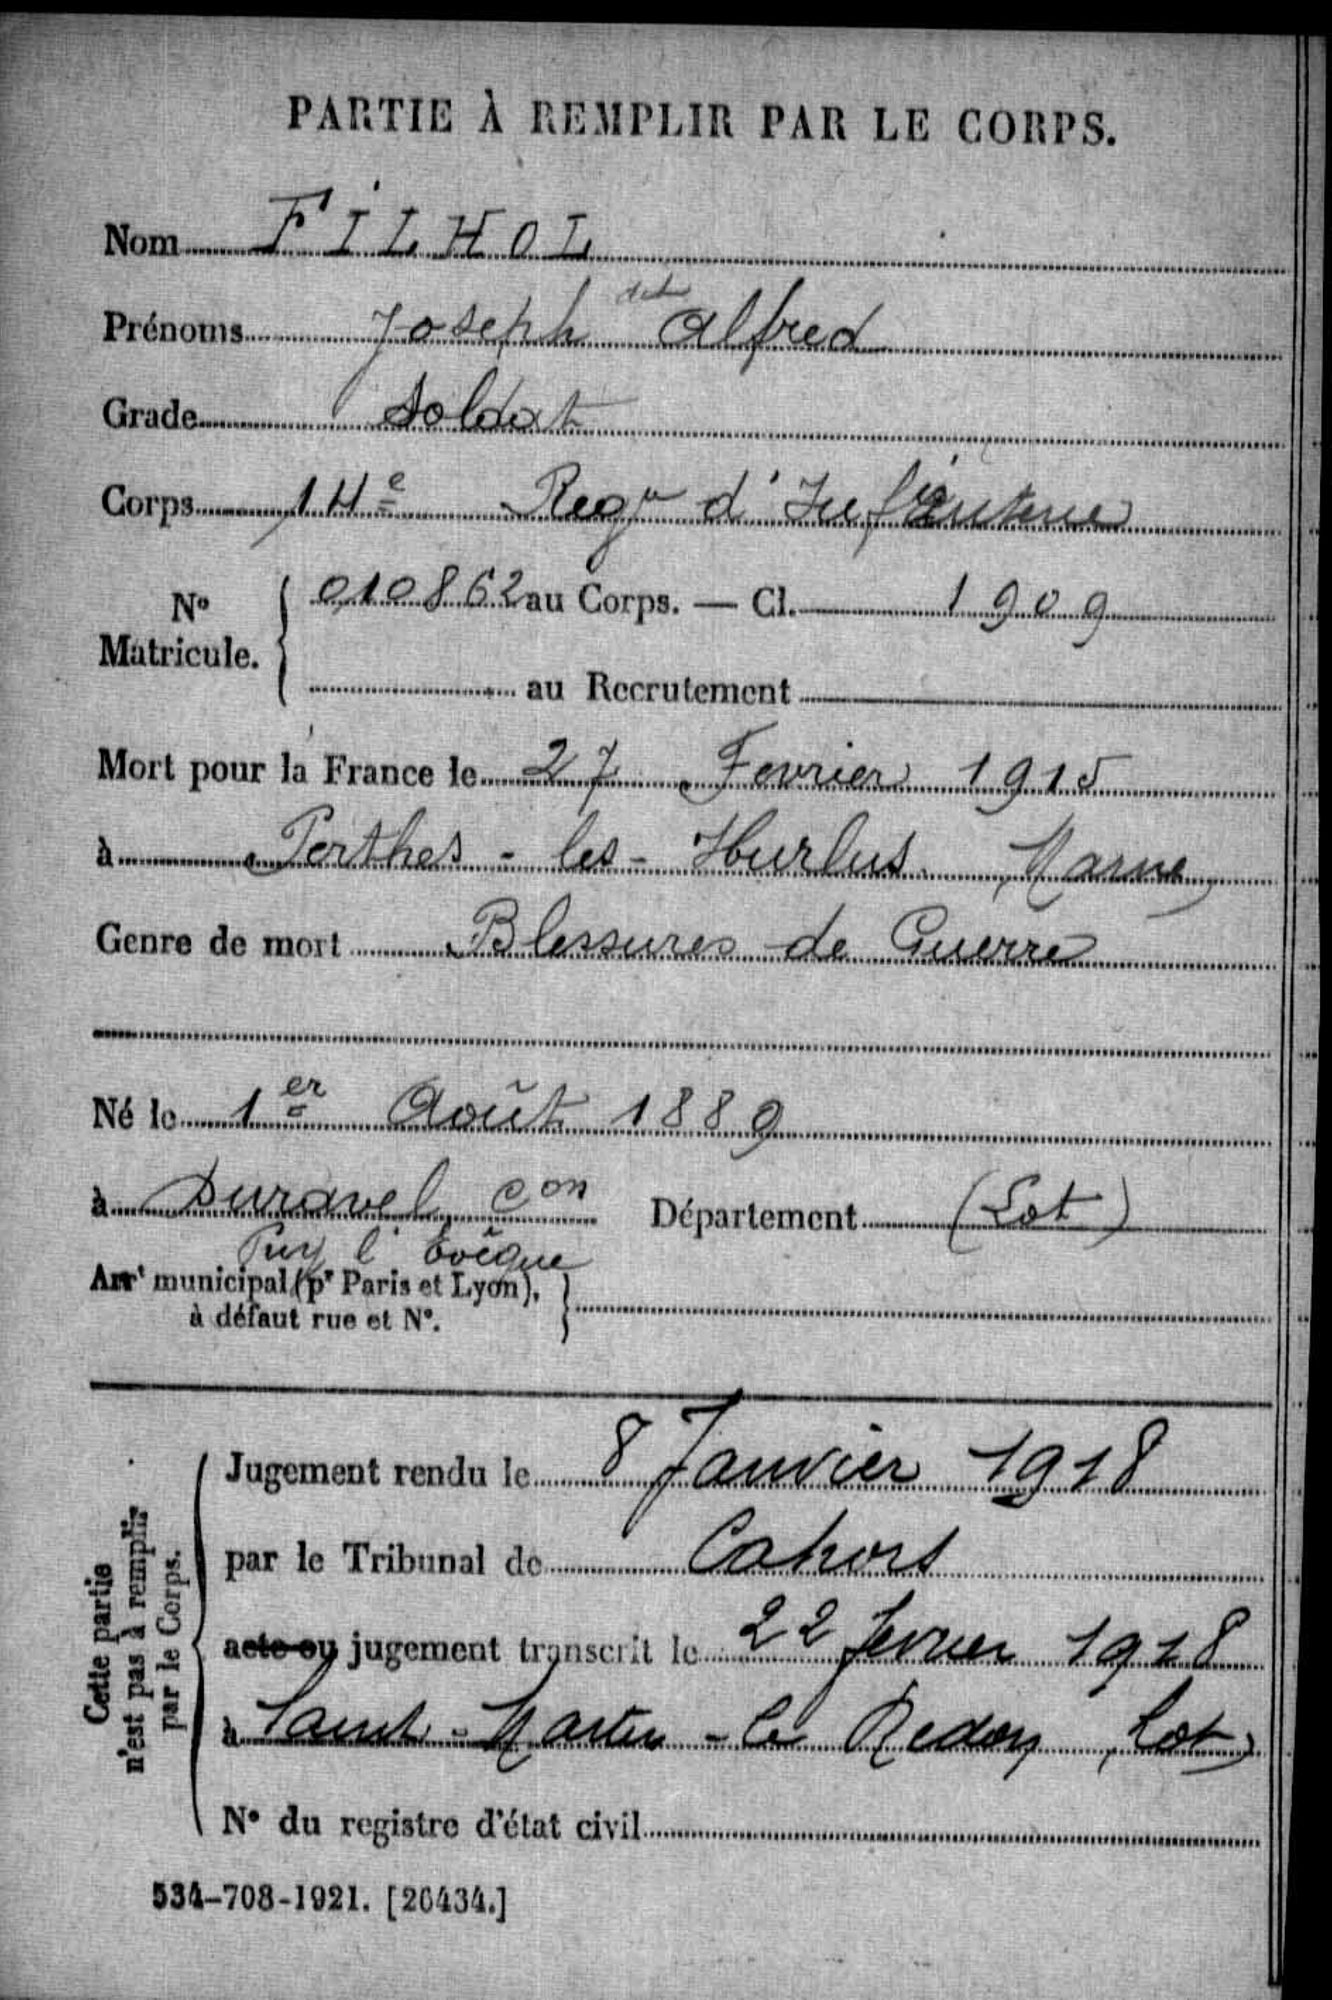 PARTIE À REMPLIR PAR LE CORPS.
Nom FILHOL
Prénoms Joseph dit Alfred
Grade Soldat
Corps 14e Regt d'Infanterie
No Matricule. 010862 au Corps. — Cl. 1909
au Recrutement
Mort pour la France le 27 Fevrier 1915
à Perthes-les-Hurlus. Marne
Genre de mort Blessures de Guerre
Né le 1er Août 1889
à Duravel, con Département (Lot)
Puy l'Evêque
Arrt municipal (pr Paris et Lyon),
à défaut rue et No.
Cette partie
n'est pas à remplir
par le Corps.
Jugement rendu le 8 Janvier 1918
par le Tribunal de Cahors
acte ou jugement transcrit le 22 fevrier 1918
à Saint-Martin-le Redon (Lot)
No du registre d'état civil
534-708-1921. [26434.]